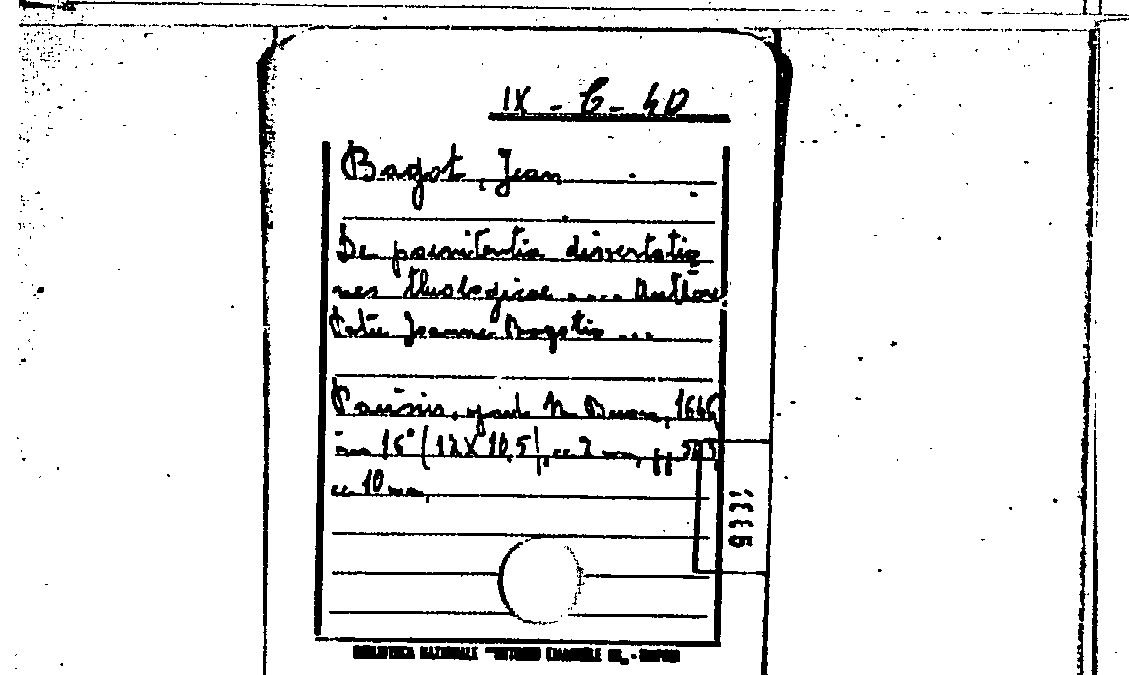 IX - C - 40
Bagot, Jean
De poenitentia dissertatio
nes theologicae .... Authore
Joanne Bagotio ...
Parisiis, apud. N. Buon, 1646
in 16° (12 X 10,5), cc 2 nn, pp
cc 10 nn.
BIBLIOTECA NAZIONALE "VITTORIO EMANUELE III" - NAPOLI